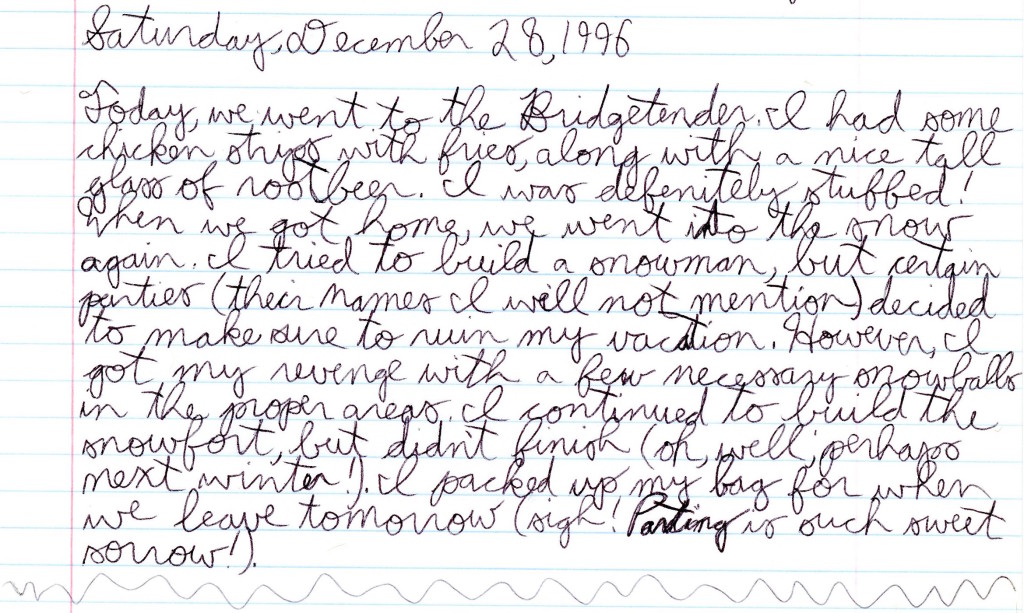 Saturday, December 28, 1996
Today, we went to the Bridgetender. I had some
chicken strips with fries, along with a nice tall
glass of rootbeer. I was defenitely stuffed!
When we got home, we went into the snow
again. I tried to build a snowman, but certain
parties (their names I will not mention) decided
to make sure to ruin my vacation. However, I
got my revenge with a few necessary snowballs
in the proper areas. I continued to build the
snowfort, but didn't finish (oh, well, perhaps
next winter!). I packed up my bag for when
we leave tomorrow (sigh! Parting is such sweet
sorrow!).